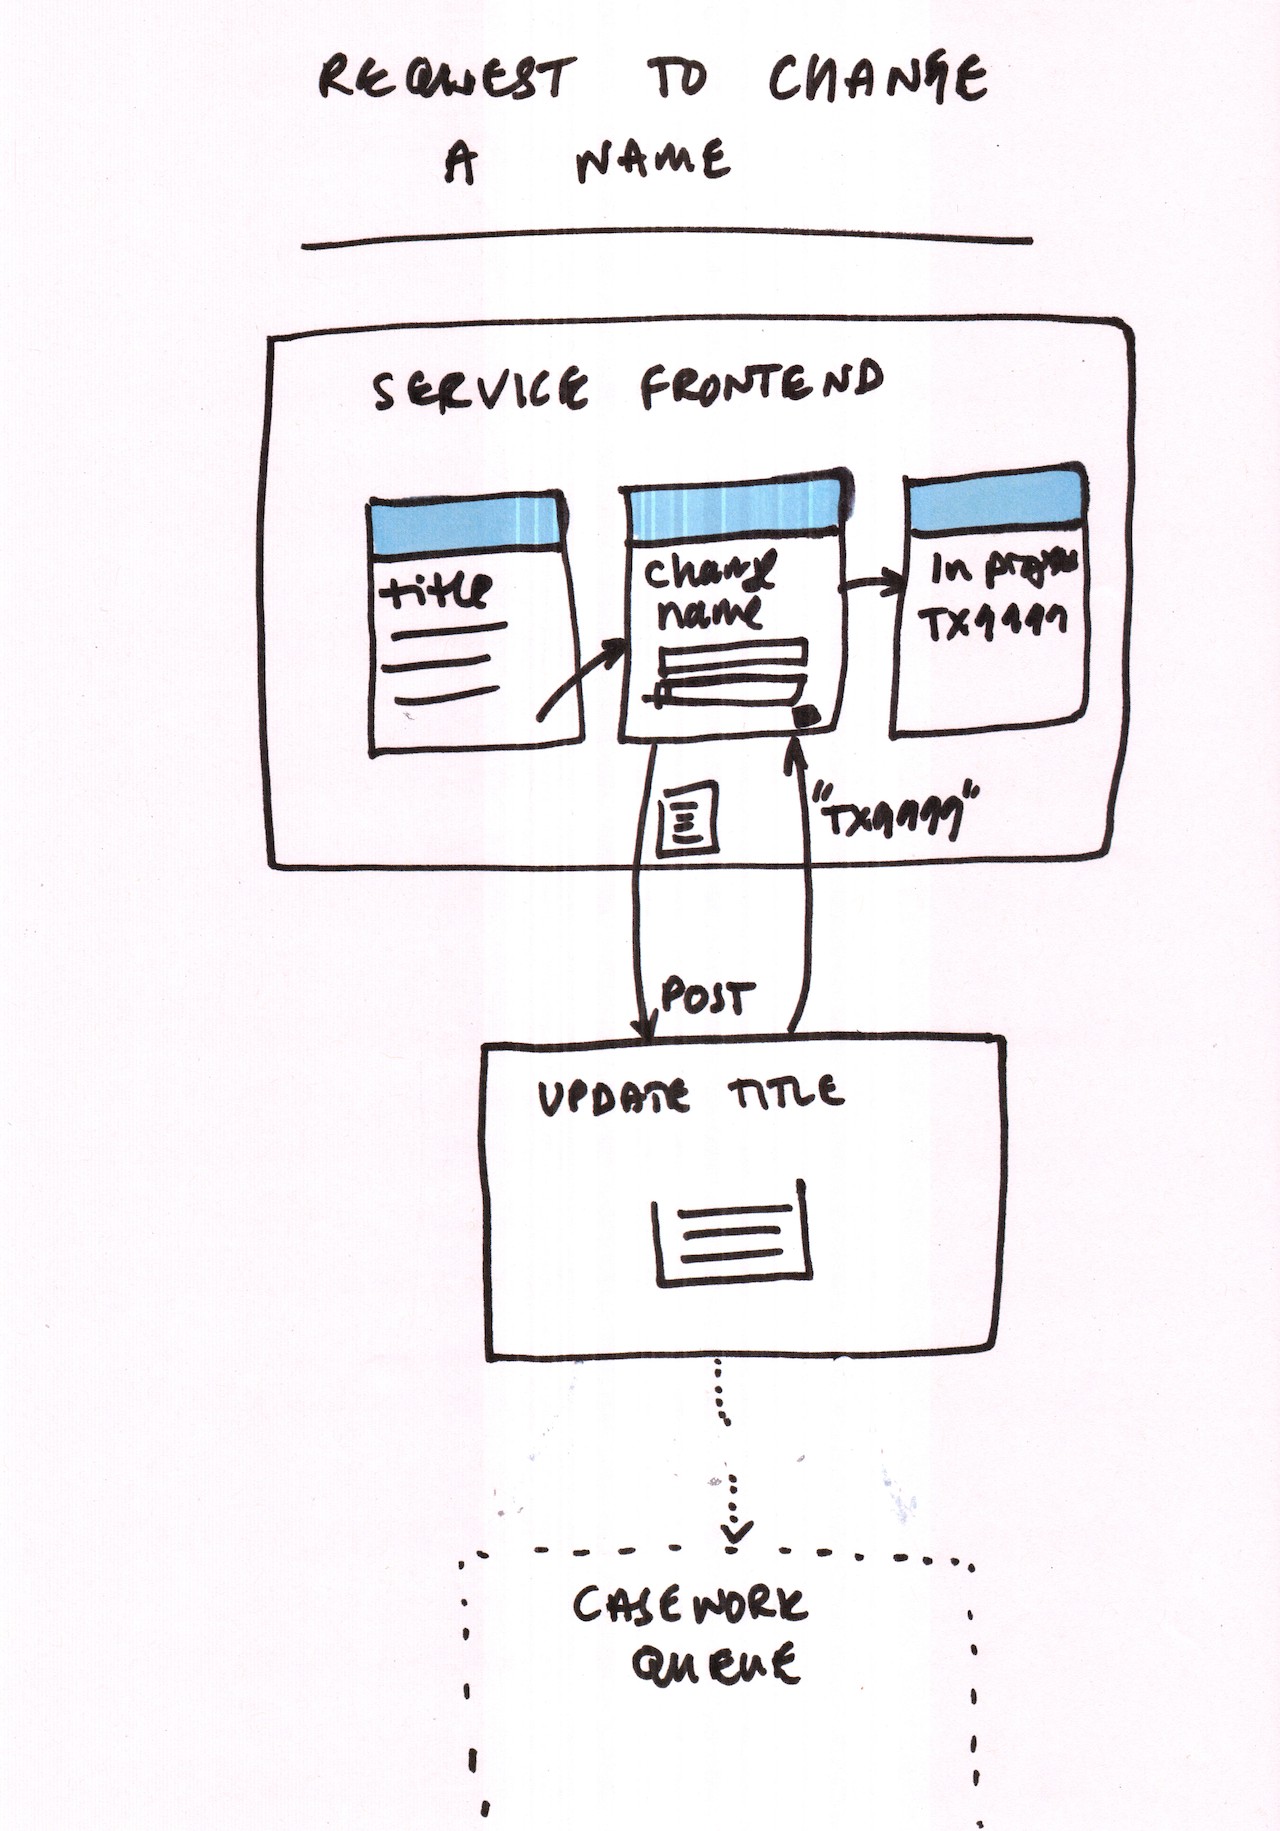 REQUEST TO CHANGE
A NAME
SERVICE FRONTEND
title
change
name
In progress
TX9999
"TX9999"
POST
UPDATE TITLE
CASEWORK
QUEUE